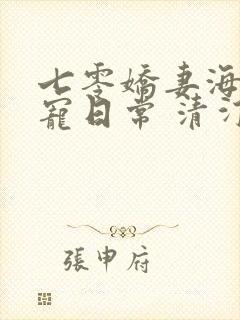 七零嬌妻海
寵日常 清
張申府